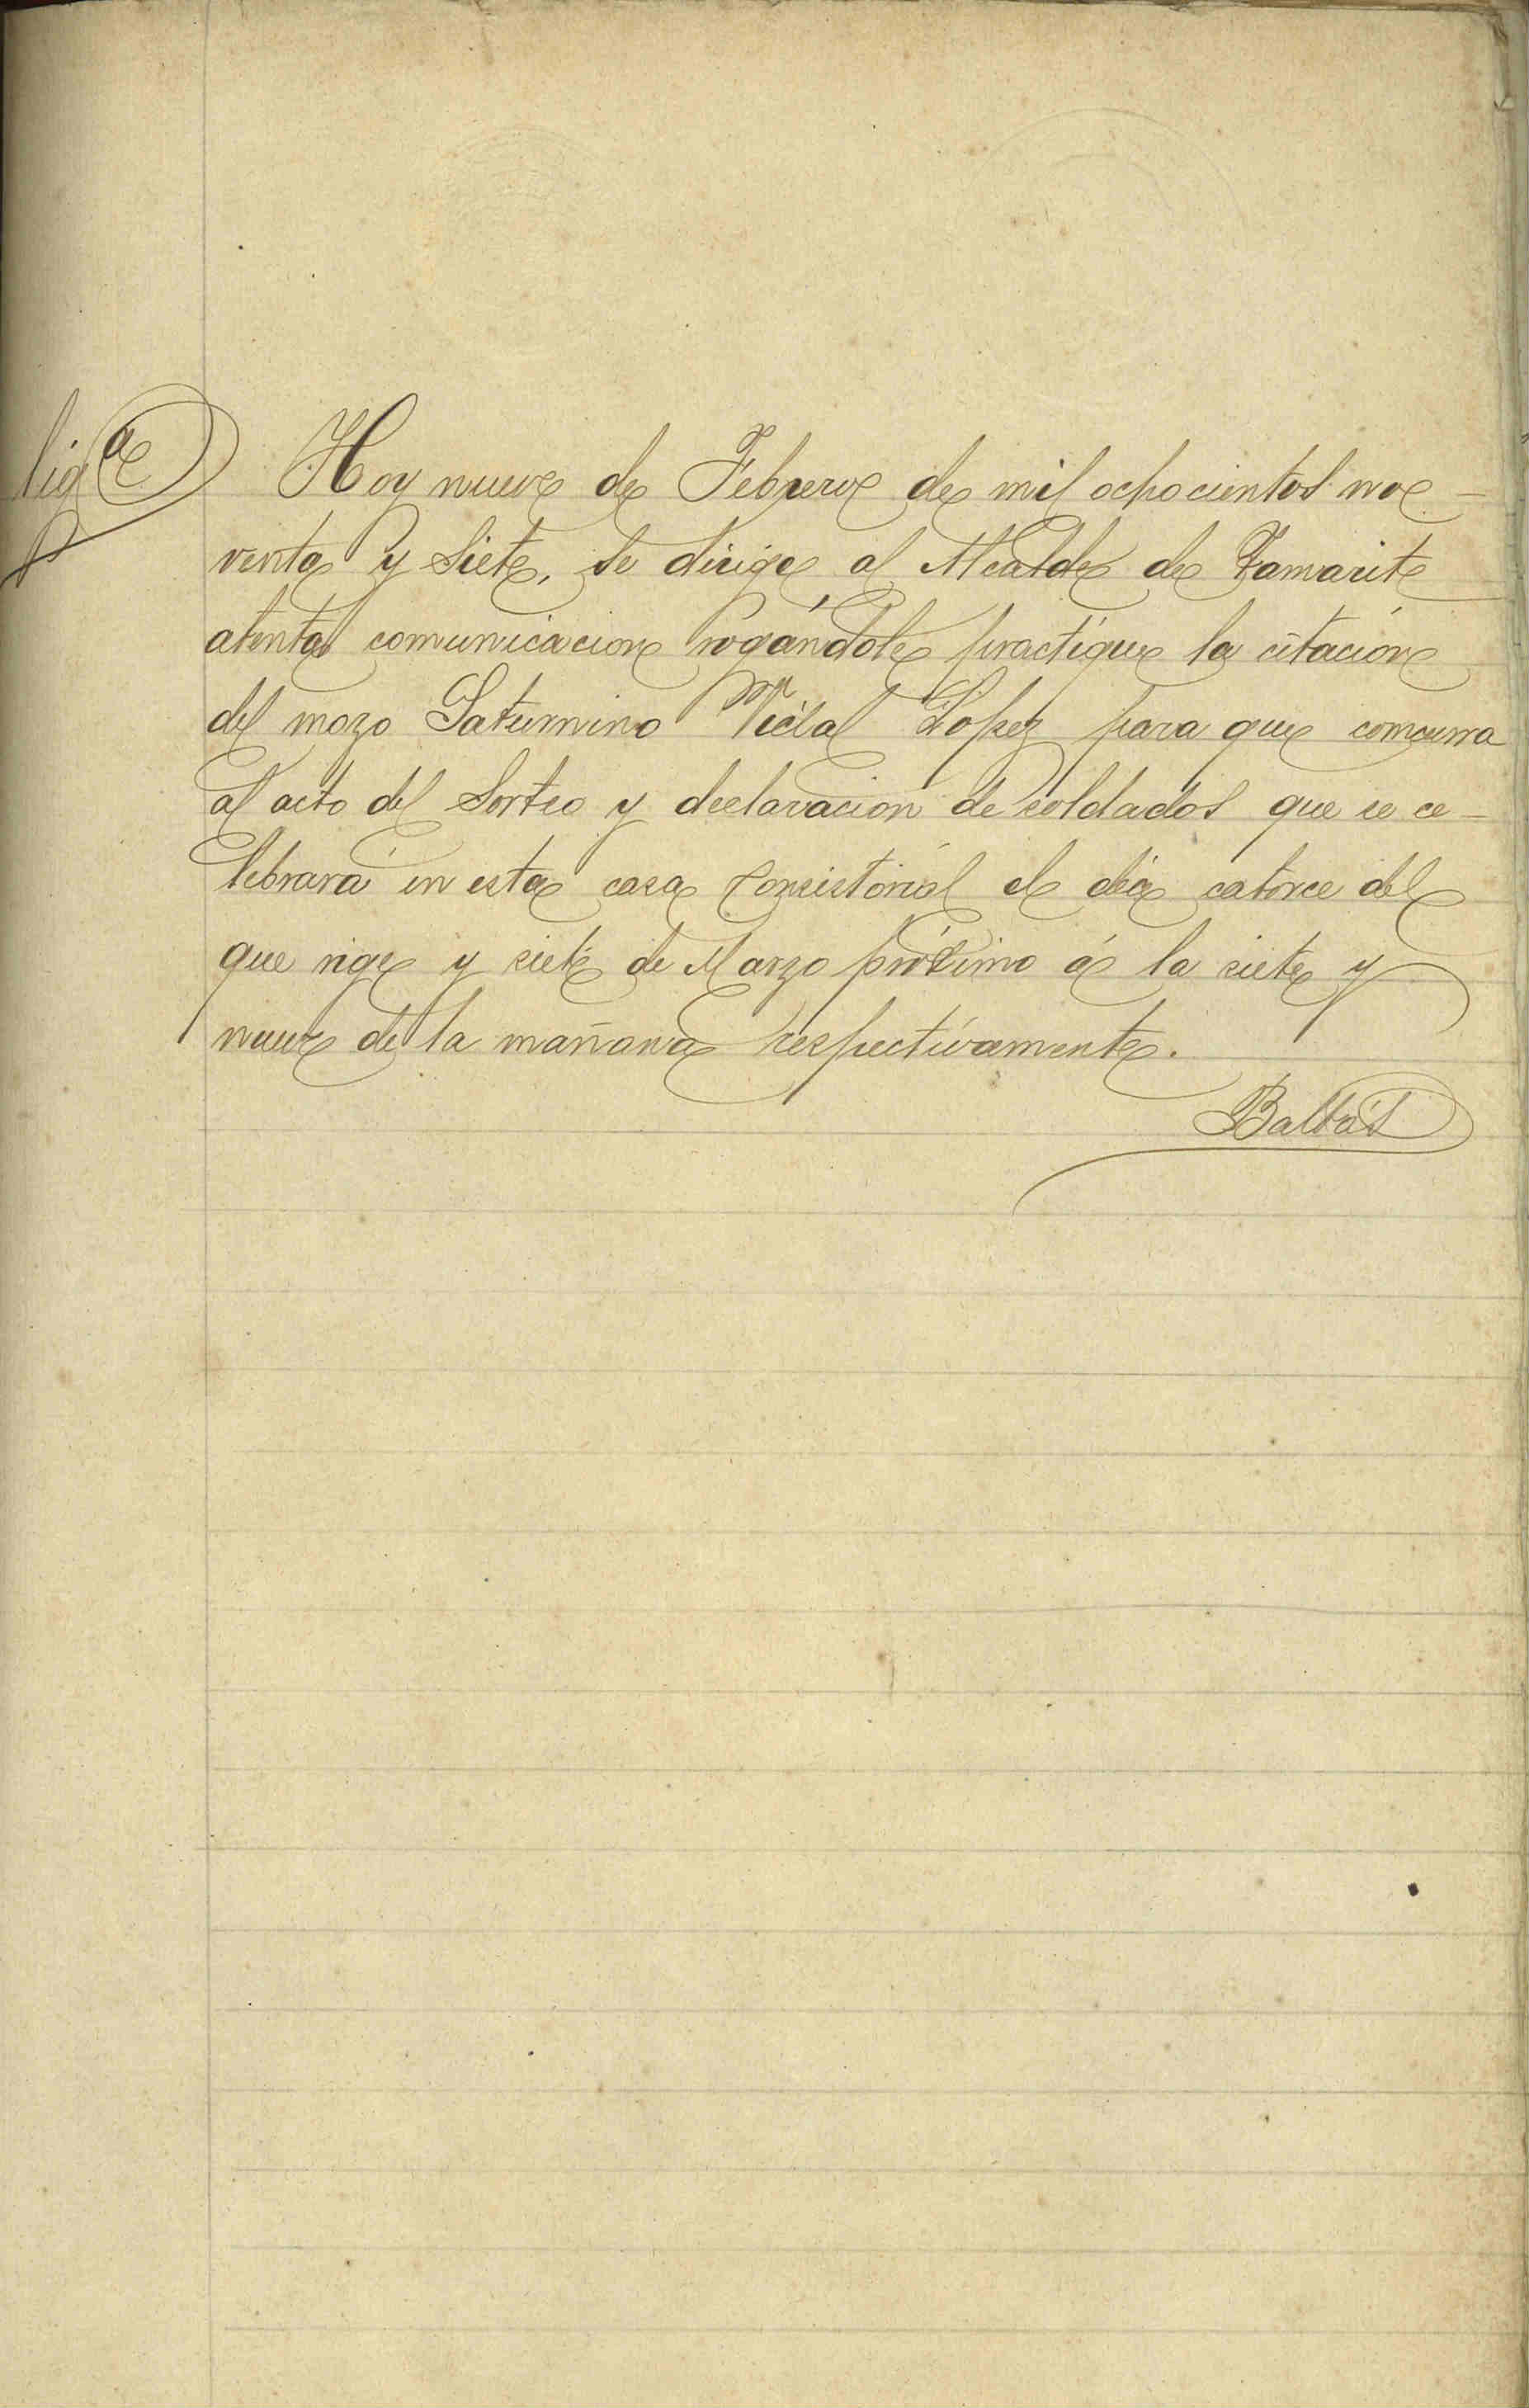 lig.ª
Hoy nueve de Febrero de mil ochocientos no-
venta y Siete, se dirige al Alcalde de Tamarite
atenta comunicacion rogándole practíque la citación
del mozo Saturnino Vidal Lopez para que concurra
al acto del Sorteo y declaración de soldados que se ce-
lebrará en esta casa Consistorial el día catorce del
que rige y siete de Marzo próximo á la siete y
nueve de la mañana respectívamente.